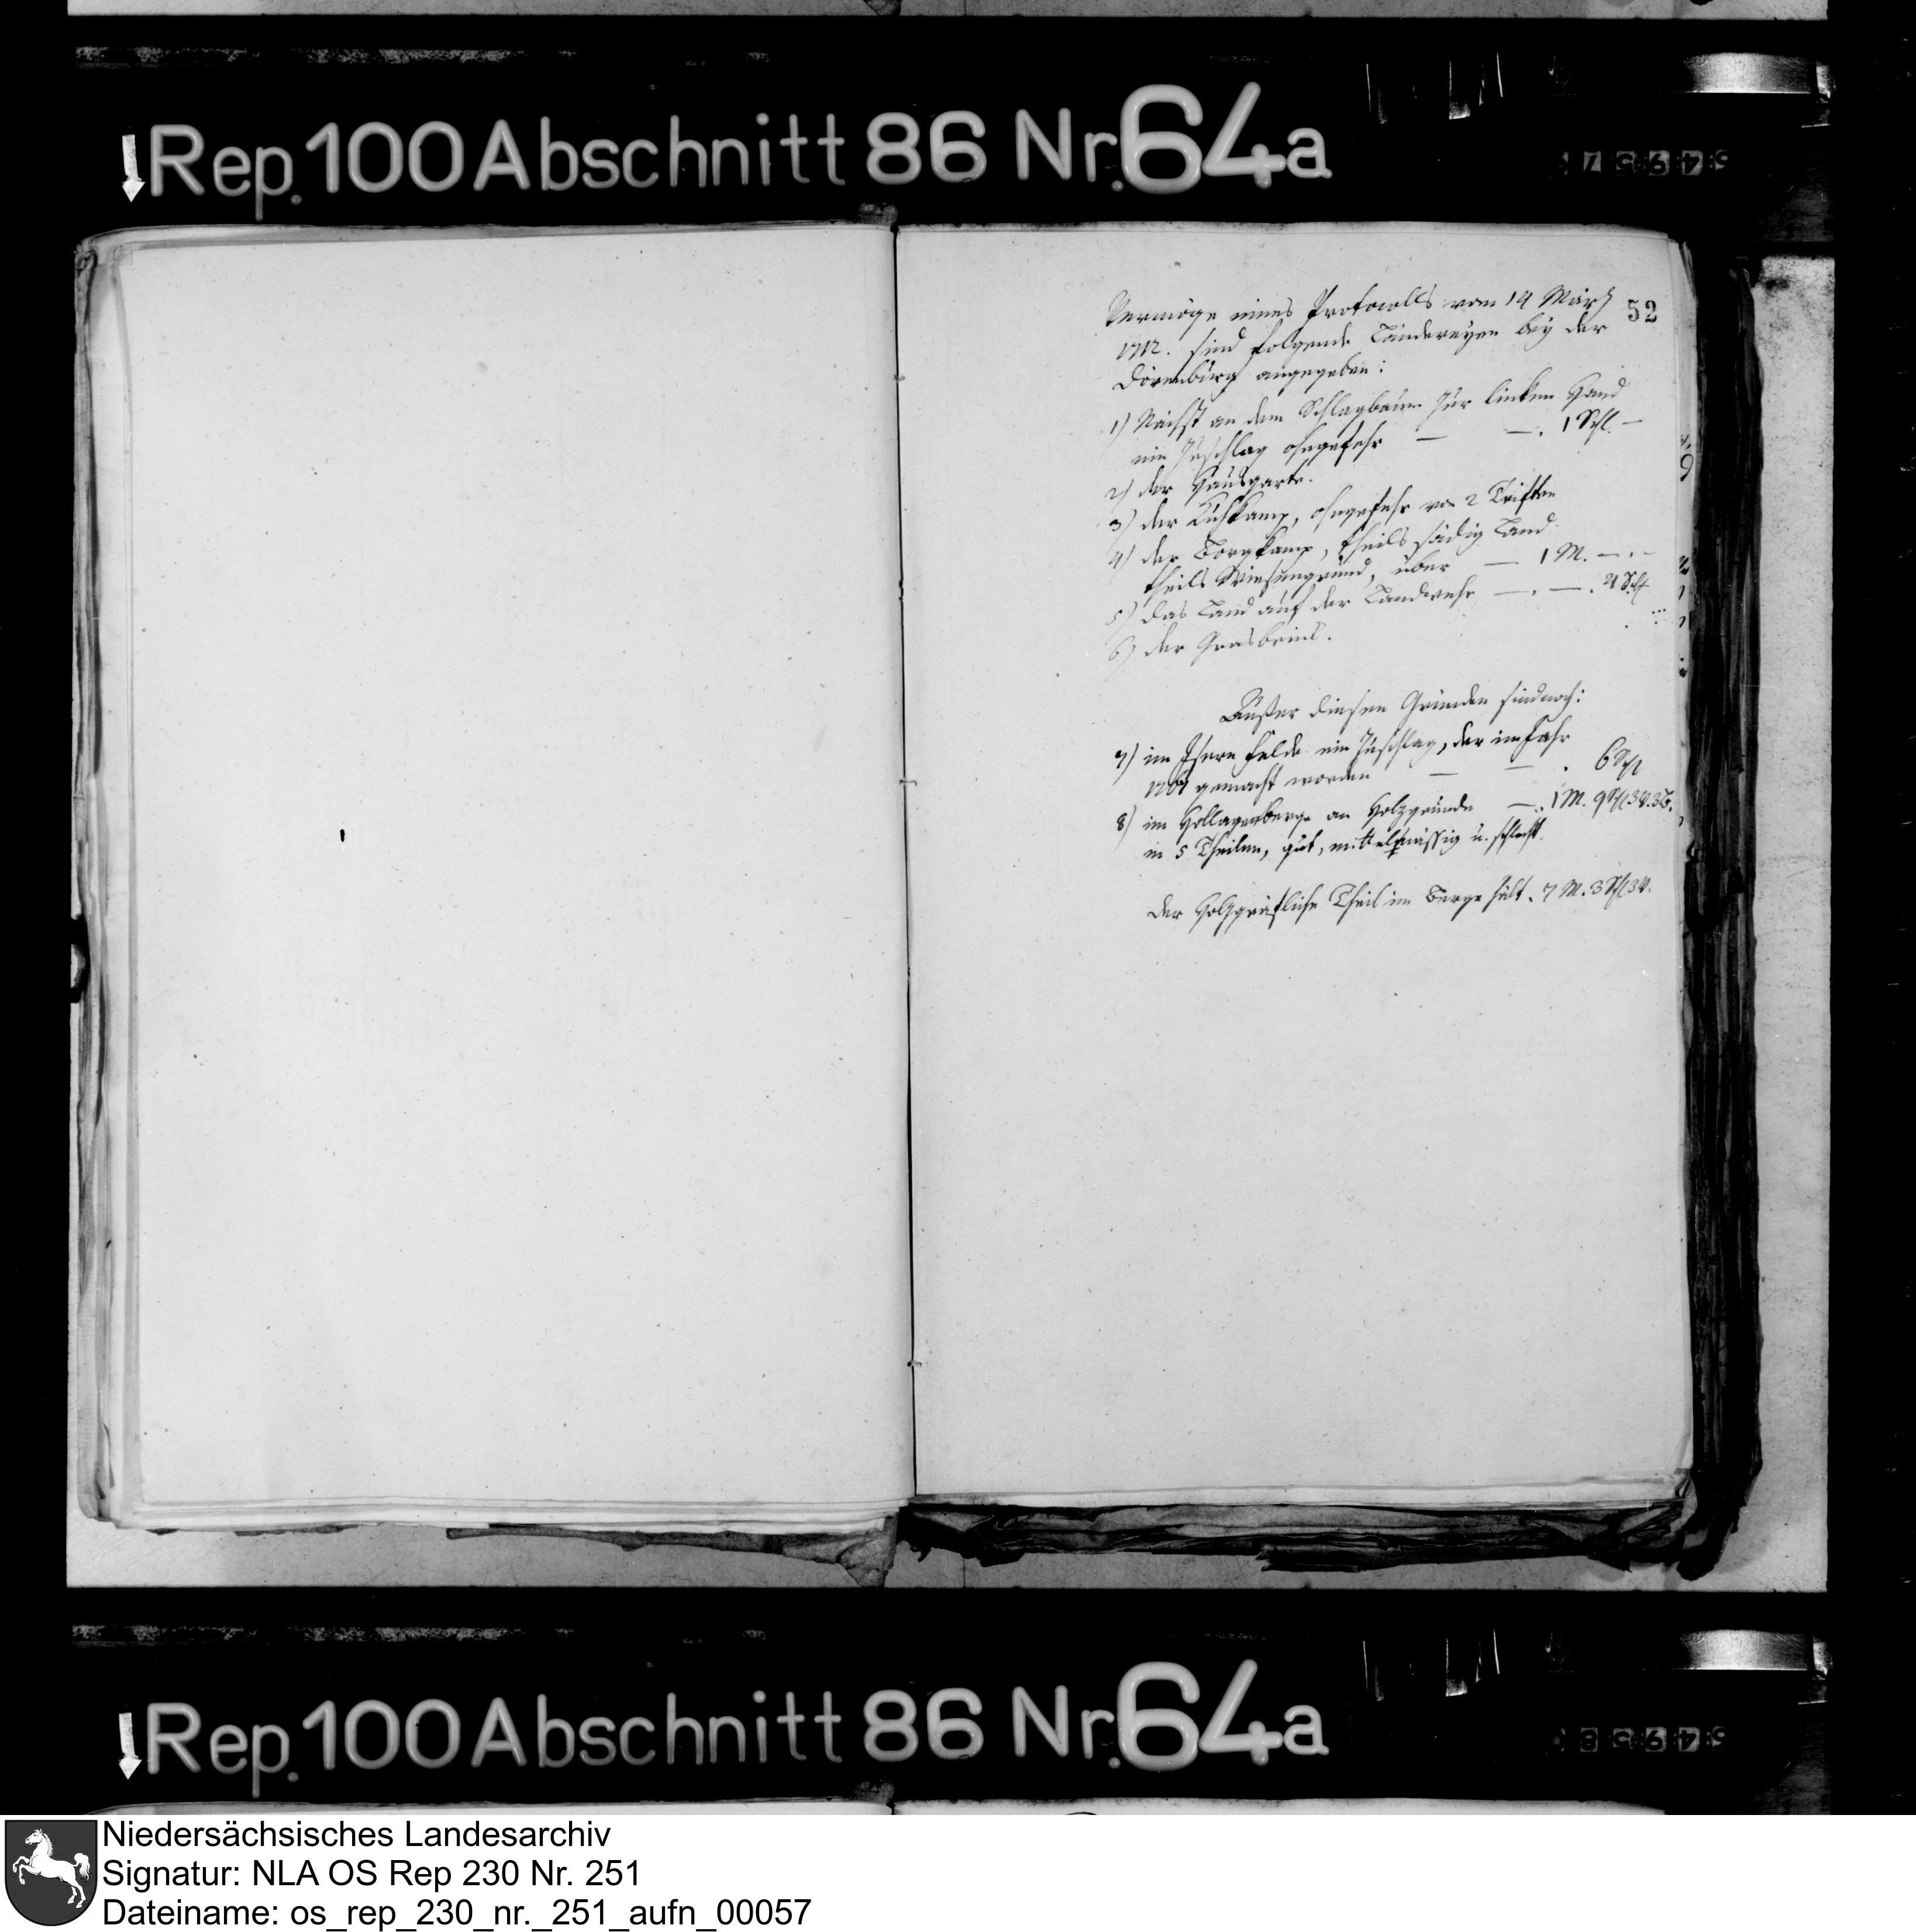 Rep. 100 Abschnitt 86 Nr. 64a
52
Vermöge eines Protocolls vom 14 März
1712. sind folgende Ländereyen bey der
Dörenburg angegeben:
1) Nächst an dem Schlagbaum zur linken Hand
ein Zuschlag ohngefehr — —. 1 Schl. —
2) der Hausgarte.
3) der Kuhkamp, ohngefehr von 2 Triften
4) der Borgkamp, theils sädig Land
theils Wiesengrund, über — 1 M. —.–
5) das Land auf der Landwehr —. —. 4 Sch
6) der Grasbrink.
Außer diesen Gründen sind noch:
7) im Felde ein Zuschlag, der im Jahr
gemacht worden — — . 6 Sch
8) im Hollagerberge an Holzgründe —. 1 M. 9 Sch 3 V. 3 B.
in 5 Theilen, gut, mittelmässig u. schlecht.
der Holzgräfliche Theil im Berge hält. 7 M. 3 Sch 3 V.
Rep. 100 Abschnitt 86 Nr. 64a
Niedersächsisches Landesarchiv
Signatur: NLA OS Rep 230 Nr. 251
Dateiname: os_rep_230_nr._251_aufn_00057